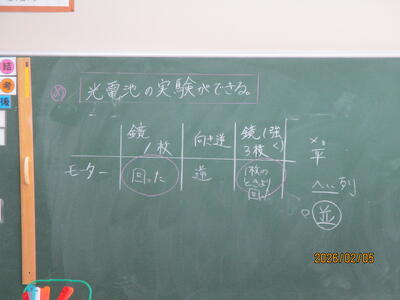 結
考
後
め 光電池の実験ができる。
鏡1枚 向き逆 鏡(強く)3枚
モーター 回った 逆 1枚のときより回った
×。平
へい列
。並
2026/02/05